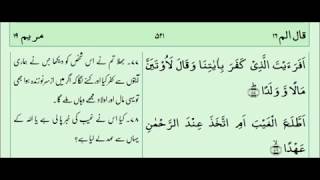 قال الم ١٦
٥٢١
مریم ١٩
اَفَرَءَيْتَ الَّذِىْ كَفَرَ بِاٰيٰتِنَا وَقَالَ لَاُوْتَيَنَّ
مَالًا وَّ وَلَدًا
اَطَّلَعَ الْغَيْبَ اَمِ اتَّخَذَ عِنْدَ الرَّحْمٰنِ
عَهْدًا
۷۷۔ بھلا تم نے اس شخص کو دیکھا جس نے ہماری
آیتوں سے کفر کیا اور کہنے لگا کہ اگر میں ازسرنو زندہ ہوا بھی
تو یہی مال اور اولاد مجھے وہاں ملے گا۔
۷۸۔ کیا اس نے غیب کی خبر پا لی ہے یا اللہ کے
یہاں سے عہد لے لیا ہے؟